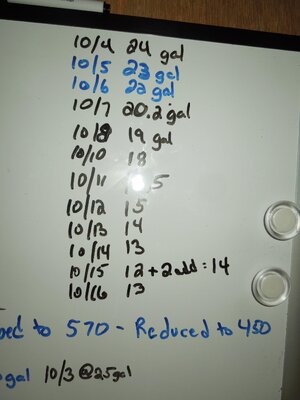 10/4 24 gal
10/5 23 gal
10/6 22 gal
10/7 20.2 gal
10/8 19 gal
10/10 18
10/11 5
10/12 15
10/13 14
10/14 13
10/15 12 + 2 add = 14
10/16 13
to 570 - Reduced to 450
gal 10/3 @ 25gal